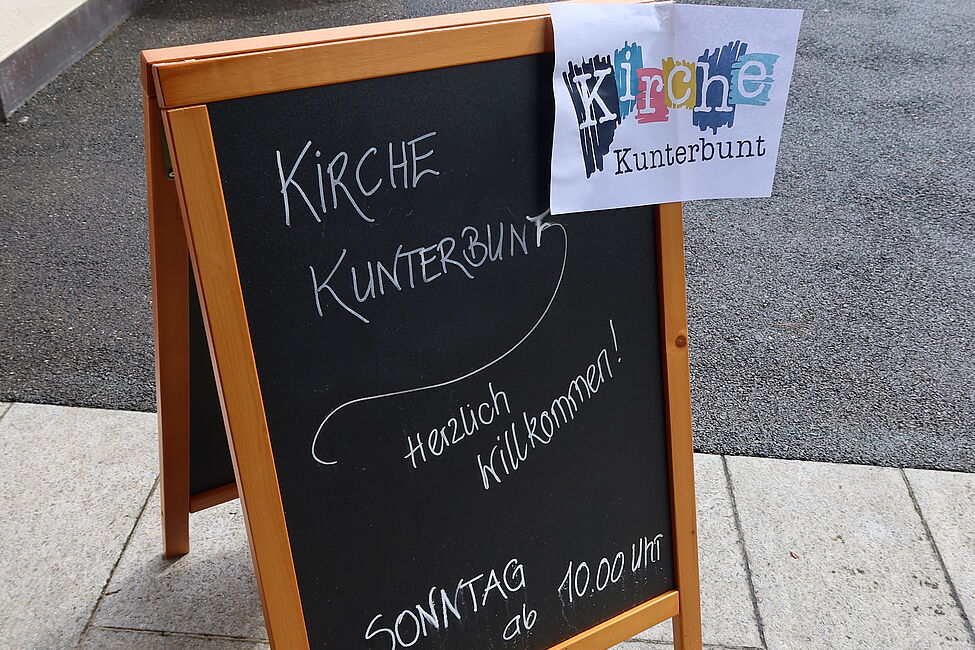 Kirche
Kunterbunt
KIRCHE
KUNTERBUNT
Herzlich
Willkommen!
SONNTAG
ab 10.00 Uhr